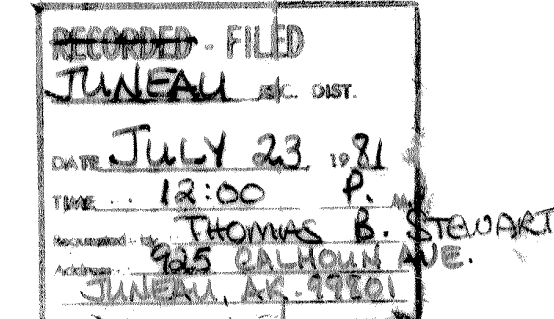 RECORDED - FILED
JUNEAU REC. DIST.
DATE JULY 23 1981
TIME 12:00 P. M.
Requested by THOMAS B. STEWART
Address 925 CALHOUN AVE.
JUNEAU, AK. 99801